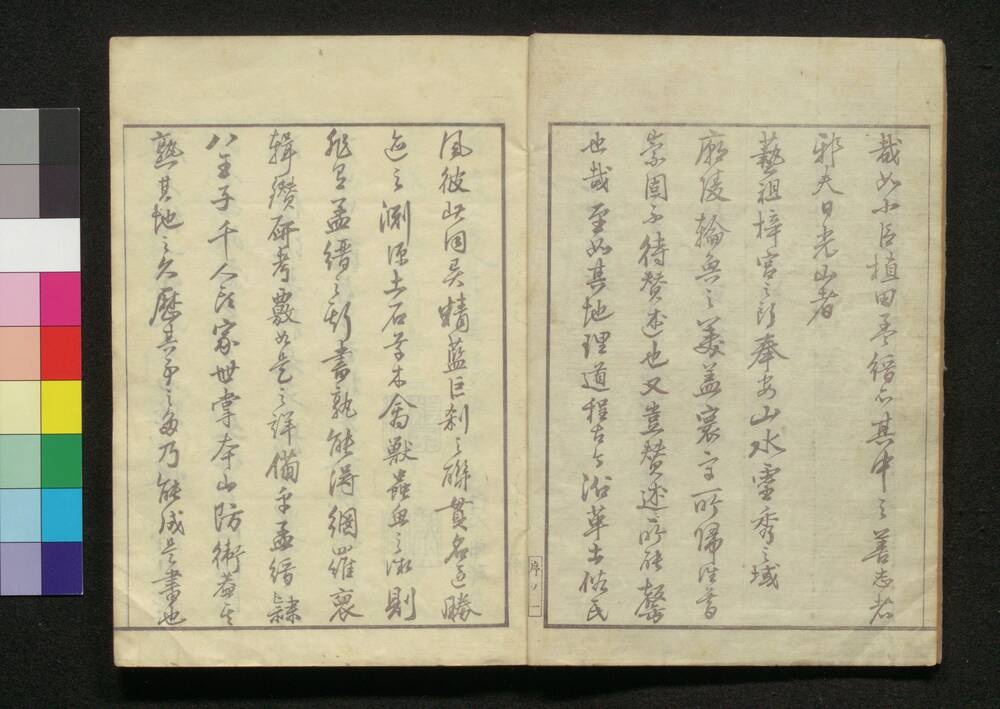 哉如小臣植田孟縉亦其中之善志者
邪夫日光山者
藝祖梓宮之所奉安山水霊秀之域
廟陵輪奐之美蓋寰宇所帰望
崇固不待賛述也又豈賛述所能罄
也哉至如其地理道程古今沿革土俗民
風彼此同異精藍巨刹之聯貫名区勝
迹之淵源土石草木禽獣蟲魚之微則
非有孟縉之斯書孰能得網羅裒
輯鑽研考覈如是之詳備乎孟縉隷
八王子千人氏家世掌本山防衛
熟其地之久歴其事之多乃能成是書也
序ノ一